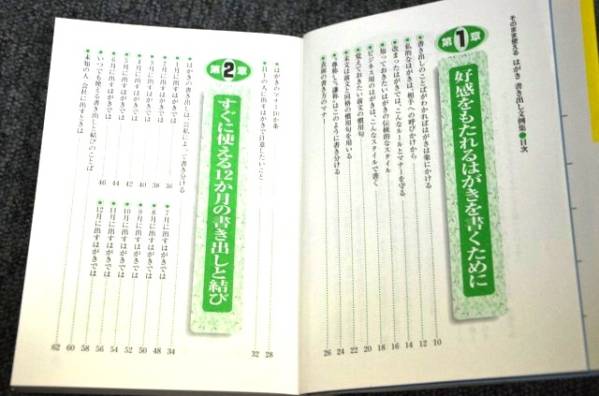 そのまま使える はがき 書き出し文例集●目次
第1章
好感をもたれるはがきを書くために
●書き出しのことばがわかればはがきは楽にかける 10
●私的なはがきは、相手への呼びかけから 12
●改まったはがきでは、こんなルールとマナーを守る 14
●知っておきたいはがきの伝統的なスタイル 16
●ビジネス用のはがきは、こんなスタイルで書く 18
●覚えておきたい前文の慣用句 20
●末文は前文と同格の慣用句を用いる 22
24
●表書の書き方のマナー 26
●はがきのマナー
28
●目上の人に出すはがきで注意したいこと 32
第2章
すぐに使える12か月の書き出しと結び
●はがきの書き出しは、公私によって書き分ける 34
●1月に出すはがきでは 36
38
40
●4月に出すはがきでは
●5月に出すはがきでは 42
●6月に出すはがきでは 44
●7月に出すはがきでは 48
●8月に出すはがきでは 50
●9月に出すはがきでは 52
●10月に出すはがきでは 54
●11月に出すはがきでは 56
●12月に出すはがきでは 58
●いつでも使える書き出しと結びのことば 60
●未知の人、会社に出すときは 62